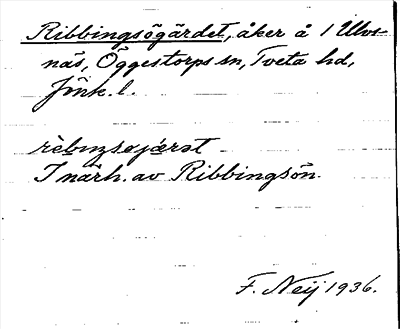 Ribbingsögärdet, åker å 1 Ulvs-
näs, Öggestorps sn, Tveta hd,
Jönk. l.
I närh. av Ribbingsön.
F. Neij 1936.